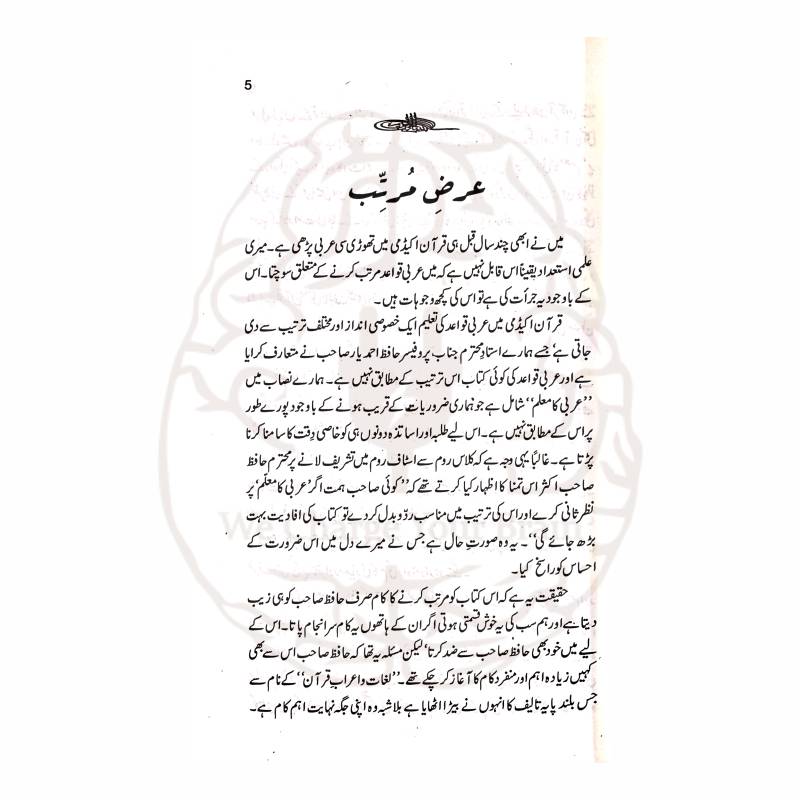 5
عرضِ مُرتِّب
میں نے ابھی چند سال قبل ہی قرآن اکیڈمی میں تھوڑی سی عربی پڑھی ہے۔ میری
علمی استعداد یقیناً اس قابل نہیں ہے کہ میں عربی قواعد مرتب کرنے کے متعلق سوچتا۔ اس
کے باوجود یہ جرأت کی ہے تو اس کی کچھ وجوہات ہیں۔
قرآن اکیڈمی میں عربی قواعد کی تعلیم ایک خصوصی انداز اور مختلف ترتیب سے دی
جاتی ہے‘ جسے ہمارے استادِ محترم جناب پروفیسر حافظ احمد یار صاحب نے متعارف کرایا
ہے اور عربی قواعد کی کوئی کتاب اس ترتیب کے مطابق نہیں ہے۔ ہمارے نصاب میں
’’عربی کا معلم‘‘ شامل ہے جو ہماری ضروریات کے قریب ہونے کے باوجود پورے طور
پر اس کے مطابق نہیں ہے۔ اس لیے طلبہ اور اساتذہ دونوں ہی کو خاصی دِقت کا سامنا کرنا
پڑتا ہے۔ غالباً یہی وجہ ہے کہ کلاس روم سے اسٹاف روم میں تشریف لانے پر محترم حافظ
صاحب اکثر اس تمنا کا اظہار کیا کرتے تھے کہ ’’کوئی صاحب ہمت اگر ’عربی کا معلم‘ پر
نظر ثانی کرے اور اس کی ترتیب میں مناسب ردّ و بدل کر دے تو کتاب کی افادیت بہت
بڑھ جائے گی‘‘۔ یہ وہ صورتِ حال ہے جس نے میرے دل میں اس ضرورت کے
احساس کو راسخ کیا۔
حقیقت یہ ہے کہ اس کتاب کو مرتب کرنے کا کام صرف حافظ صاحب کو ہی زیب
دیتا ہے اور ہم سب کی یہ خوش قسمتی ہوتی اگر ان کے ہاتھوں یہ کام سرانجام پاتا۔ اس کے
لیے میں خود بھی حافظ صاحب سے ضد کرتا‘ لیکن مسئلہ یہ تھا کہ حافظ صاحب اس سے بھی
کہیں زیادہ اہم اور منفرد کام کا آغاز کر چکے تھے۔ ’’لغات و اعرابِ قرآن‘‘ کے نام سے
جس بلند پایہ تالیف کا انہوں نے بیڑا اٹھایا ہے بلاشبہ وہ اپنی جگہ نہایت اہم کام ہے۔